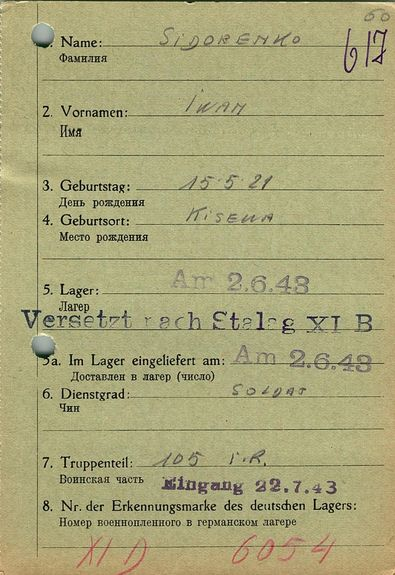 60
617
1. Name: SIDORENKO
Фамилия
2. Vornamen: IWAN
Имя
3. Geburtstag: 15.5.21
День рождения
4. Geburtsort:
Место рождения
5. Lager: Am 2.6.43
Лагер
Versetzt nach Stalag XI B
5a. Im Lager eingeliefert am: Am 2.6.43
Доставлен в лагер (число)
6. Dienstgrad: SOLDAT
Чин
7. Truppenteil: 105 I.R.
Воинская часть Eingang 22.7.43
8. Nr. der Erkennungsmarke des deutschen Lagers:
Номер военнопленного в германском лагере
XI D 6054